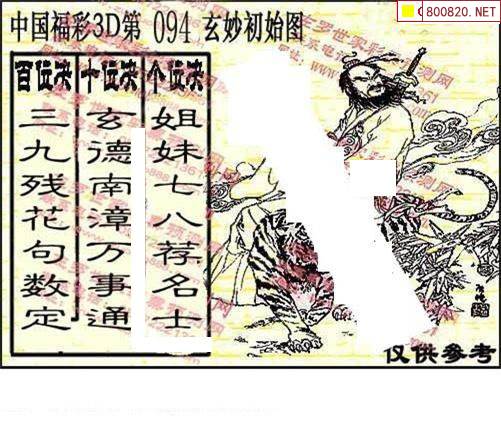 800820.NET
中国福彩3D第 094 玄妙初始图
百位决 十位决 个位决
三九残花句数定
玄德南漳万事通
姐妹七八荐名士
仅供参考